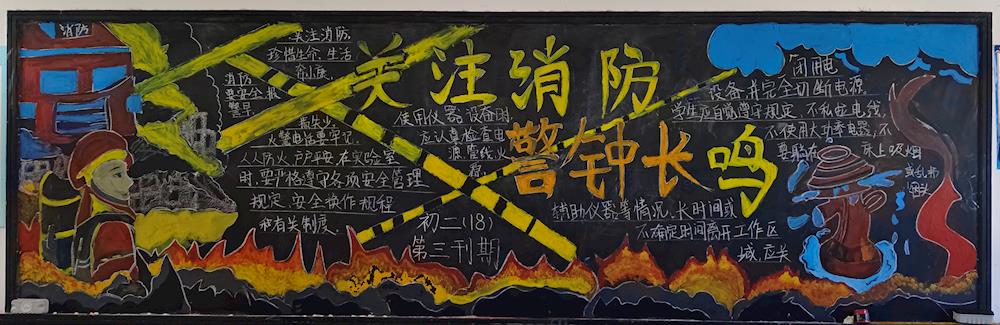 消防
关注消防
珍惜生命、生活
消防
安全报
警早
损失少
火警电话要牢记
人人防火户户平安在实验室
时,要严格遵守各项安全管理
规定、安全操作规程
和有关制度。
关注消防
警钟长鸣
使用仪器设备时,
应认真检查电
源、管线、火
初二(18)
第三刊期
辅助仪器等情况、长时间或
不确定时间离开工作区
域,应关
闭电
设备并完全切断电源
学生应自觉遵守规定,不私拉电线,
不使用大功率电器,不
要躺在床上吸烟
或乱扔
烟头